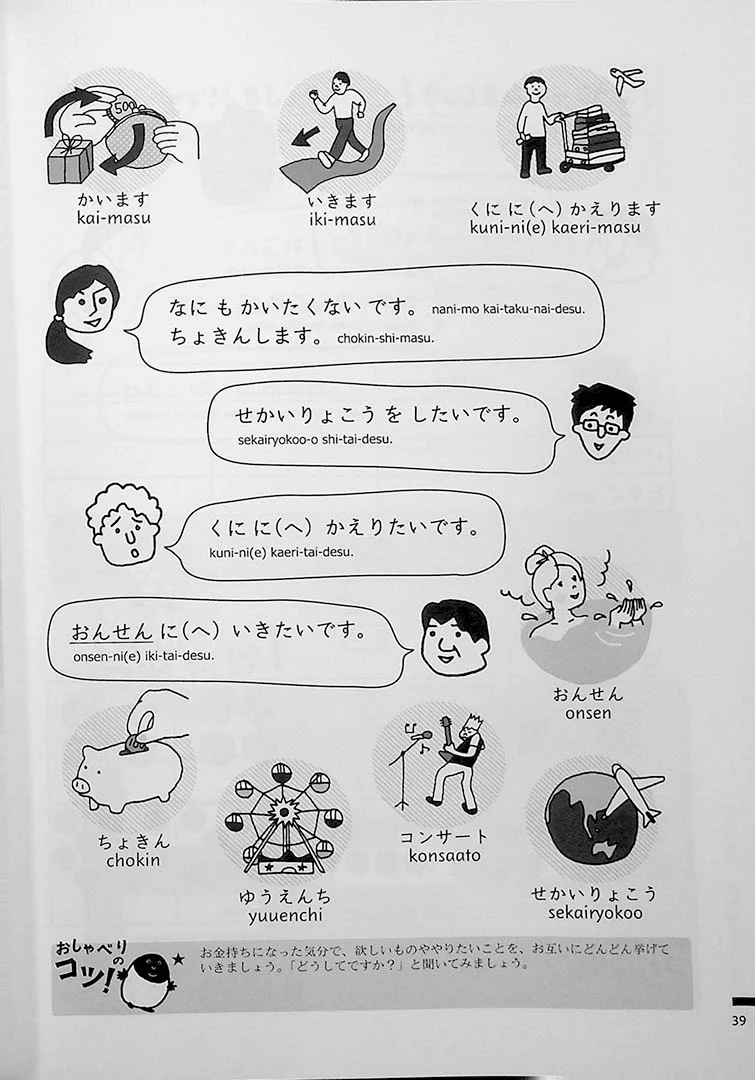 500
かいます
kai-masu
いきます
iki-masu
くに に(へ) かえります
kuni-ni(e) kaeri-masu
なに も かいたくない です。 nani-mo kai-taku-nai-desu.
ちょきんします。 chokin-shi-masu.
せかいりょこう を したいです。
sekairyokoo-o shi-tai-desu.
くに に(へ) かえりたいです。
kuni-ni(e) kaeri-tai-desu.
おんせん に(へ) いきたいです。
onsen-ni(e) iki-tai-desu.
おんせん
onsen
ちょきん
chokin
ゆうえんち
yuuenchi
コンサート
konsaato
せかいりょこう
sekairyokoo
おしゃべりの
コツ!
お金持ちになった気分で、欲しいものややりたいことを、お互いにどんどん挙げて
いきましょう。「どうしてですか?」と聞いてみましょう。
39